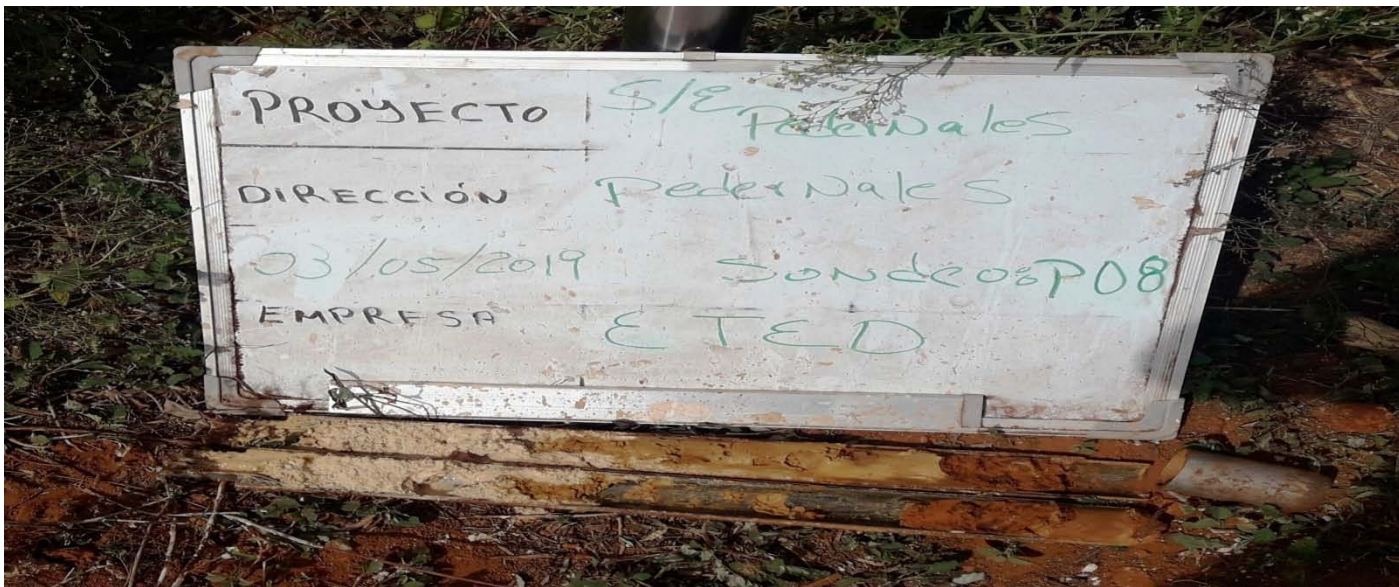 PROYECTO S/E Pedernales
DIRECCIÓN Pedernales
03/05/2019 Sondeo: P08
EMPRESA ETED